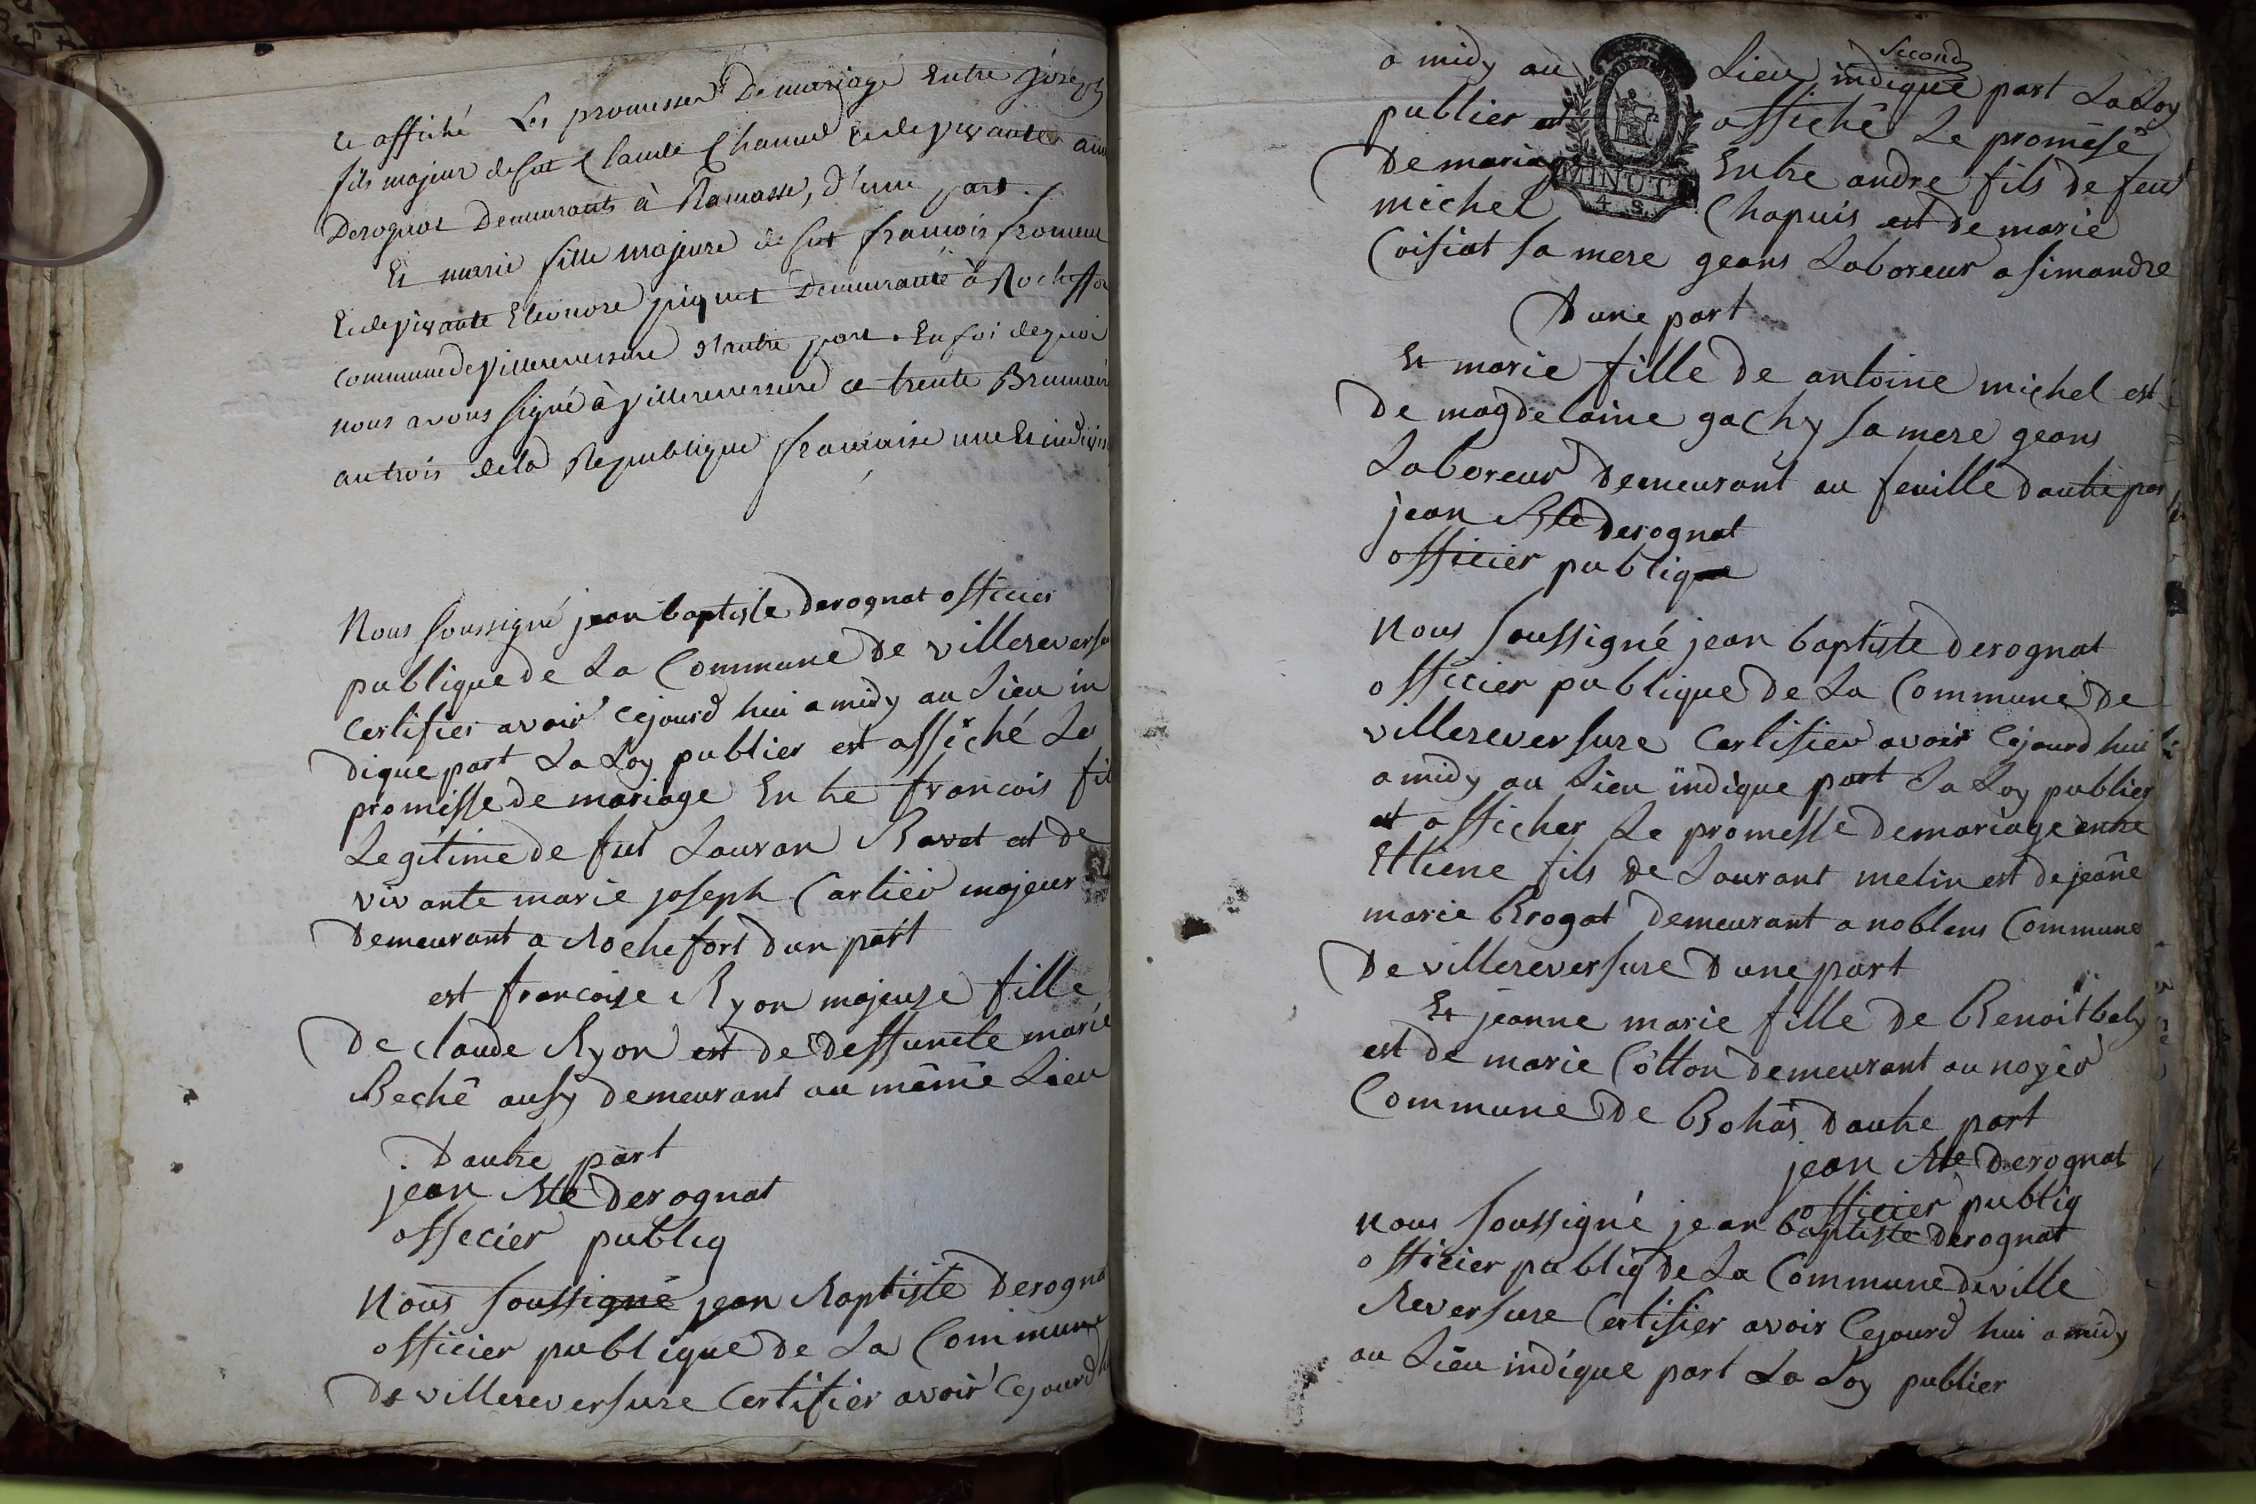 et affiché Les promesses De mariage Entre joseph
fils majeur de fut Claude Chanel et de vivante
Derognat Demeurants à Ramasse, d'une part.
Et marie fille majeure de fut francois froment
Et de vivante Eleonore piquet Demeurante à Rocheffor
Commune de Villereversure d'autre part. En foi de quoi
nous avons signé à villereversure ce trente Brumair
an trois de la Republique francaise une Et indivis
Nous soussigné jean baptiste derognat officier
publique de La Commune De villereversu
Certifier avoir cejourd hui a midy au Lieu in
dique part La Loy publier est affiché Le
promisse de mariage Entre francois fil
Legitime de fut Lauran Ravet et de
vivante marie joseph Cartier majeur
Demeurant a Rochefort dun part
est francoise Ryon majeure fille
De claude Ryon est de deffuncte marie
Beché ausy demeurant au même Lieu
Dautre part
jean Bte Derognat
offecier publiq
Nous soussigné jean Baptiste Derogna
officier publique de La Commune
De villereversure Certifier avoir Cejourd
a midy au Lieu second
indique part La Loy
publier est affiché Le promese
De mariage Entre andre fils de feu
michel Chapuis est de marie
Coisiat sa mere geans Laboreur a simandre
Dune part
Et marie fille De antoine michel est
De magdelaine gachy sa mere geans
Laboreur Demeurant au feuille dautre par
jean Bte Derognat
MINUT
4 S.
officier publique
Nous soussigné jean baptiste Derognat
officier publique De La Commune De
villereversure Certifier avoir Cejourd hui
a midy au Lieu indique part La Loy publier
et afficher Le promesse De mariage entre
Ettiene fils De Laurant melin est de jeane
marie Brogat Demeurant a noblens Commune
De villereversure Dune part
Et jeanne marie fille De Benoit baly
est de marie Cotton demeurant au noyer
Commune De Bohas dautre part
jean Bte Derognat
officier publiq
Nous soussigné jean baptiste Derognat
officier publiq De La Commune de ville
Reversure Certifier avoir Cejourd hui a midy
au Lieu indique part La Loy publier